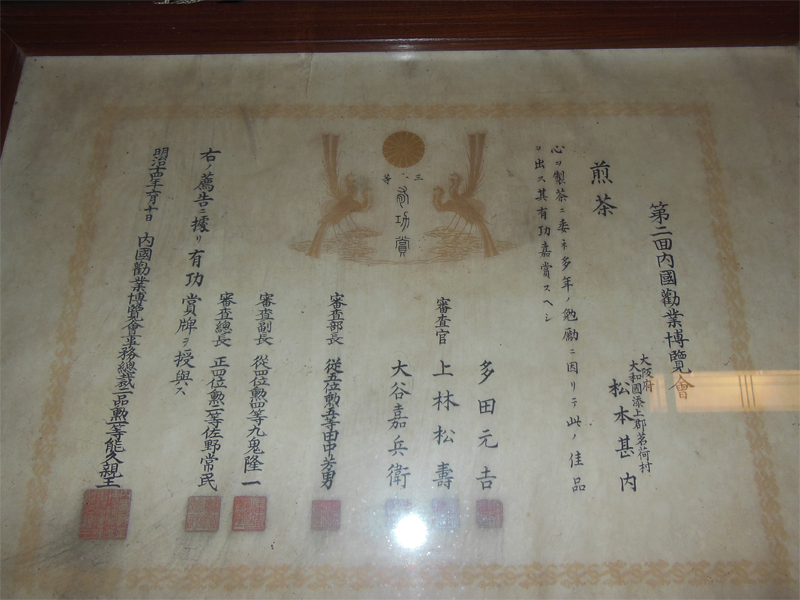 第二回内國勸業博覽會
大阪府
大和國添上郡茗荷村
松本甚内
煎茶
心ヲ製茶ニ委子多年ノ勉勵ニ因リテ此ノ佳品
ヲ出ス其有功嘉賞スヘシ
三等
有功賞
多田元吉
審査官 上林松壽
大谷嘉兵衛
審査部長 從五位勲五等田中芳男
審査副長 從四位勲四等九鬼隆一
審査總長 正四位勲二等佐野常民
右ノ薦告ニ據リ有功賞牌ヲ授與ス
明治十四年六月十日 内國勸業博覽會事務總裁二品勲一等能久親王